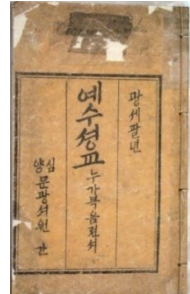 광셰팔년
예수셩교누가복음젼셔
심양 문광셔원 간